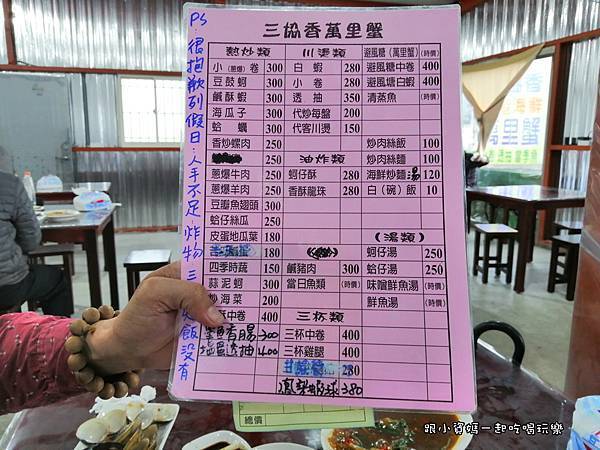 PS
很抱歉到假日,人手不足炸物三
飯沒有
三協香萬里蟹
熱炒類 川燙類 避風糖(萬里蟹) (時價)
小(卷) 300 白蝦 280 避風糖中卷 400
豆鼓蚵 300 小卷 280 避風塘白蝦 400
鹹酥蝦 300 透抽 350 清蒸魚 (時價)
海瓜子 300 代炒每盤 200
蛤蠣 300 代客川燙 150
香炒螺肉 250 炒肉絲飯 100
250 油炸類 炒肉絲麵 100
蔥爆牛肉 250 蚵仔酥 280 海鮮炒麵湯 120
蔥爆羊肉 250 香酥龍珠 280 白(碗)飯 10
豆瓣魚翅頭 300
蛤仔絲瓜 250
皮蛋地瓜葉 180 (湯類)
180 蚵仔湯 250
四季時蔬 150 鹹豬肉 300 蛤仔湯 250
蒜泥蚵 300 當日魚類 (時價) 味噌鮮魚湯 (時價)
炒海菜 200 鮮魚湯 (時價)
中卷 400 三杯類
香腸 300 三杯中卷 400
透抽 400 三杯雞腿 400
280
鳳梨蝦球 380
總價
跟小資媽一起吃喝玩樂